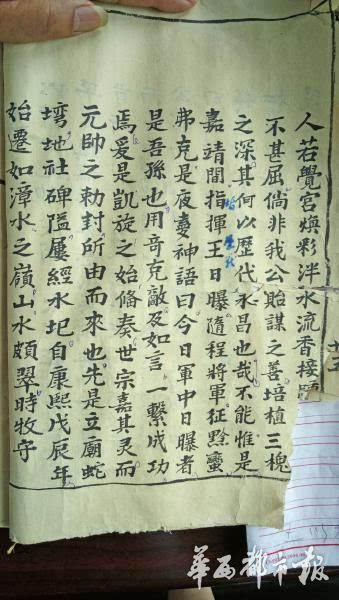 人若黌宮煥彩泮水流香接
不甚屈倘非我公貽謀之善培植三槐
之深其何以歷代永昌也哉不能惟是
嘉靖間指揮王日曝隨程將軍征黔蠻
弗克是夜夢神語曰今日軍中日曝者
是吾孫也用奇克敵及如言一繫成功
焉爰是凱旋之始俻奏世宗嘉其灵而
元帥之勅封所由而來也先是立廟蛇
塆地社碑隘屢經水圯自康熙戊辰年
始遷如漳水之嶺山水頗翠時牧守
華西都市报